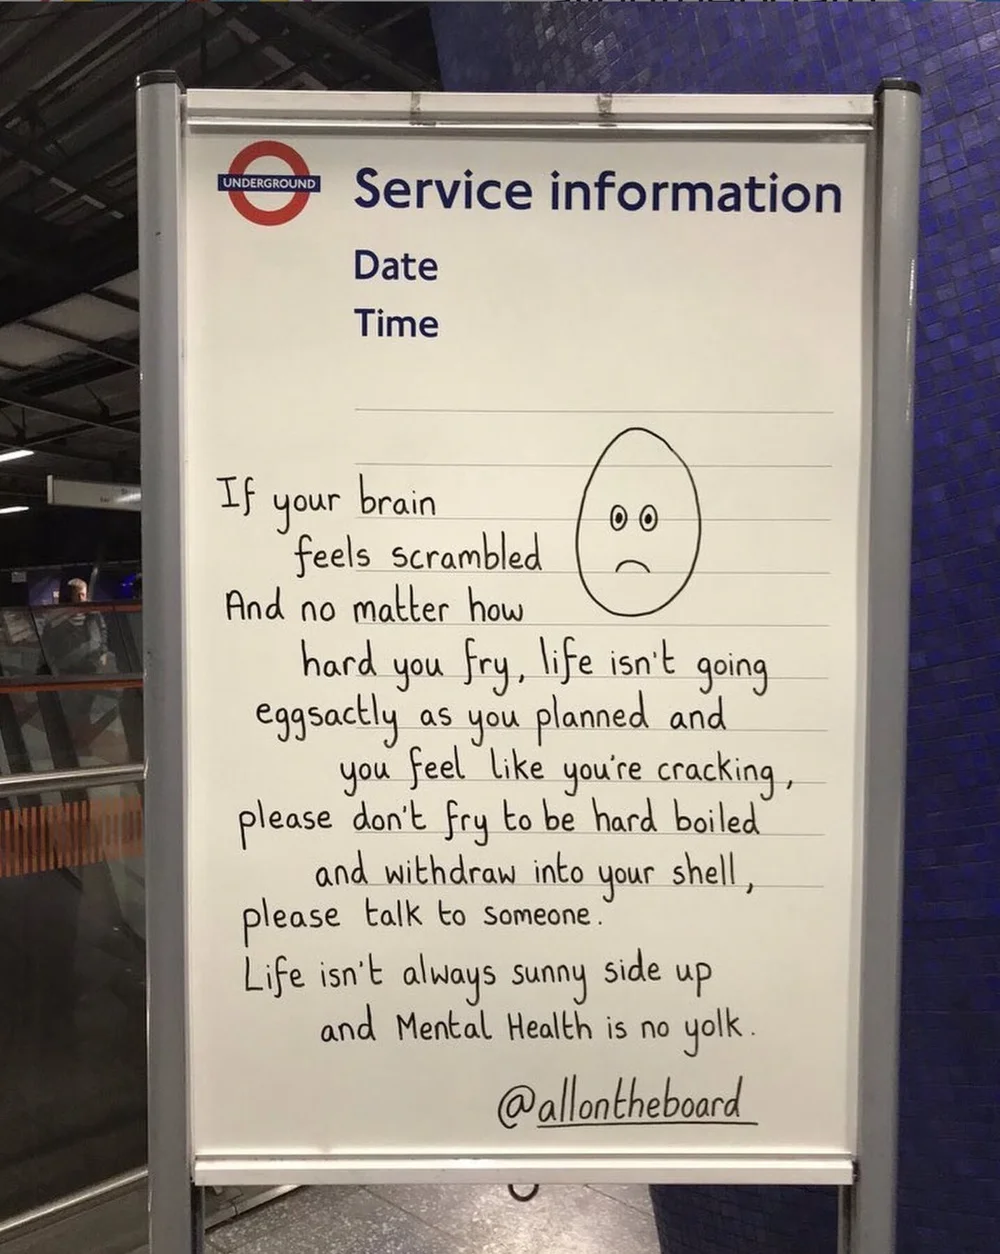 UNDERGROUND
Service information
Date
Time
If your brain
feels scrambled
And no matter how
hard you fry, life isn't going
eggsactly as you planned and
you feel like you're cracking,
please don't fry to be hard boiled
and withdraw into your shell,
please talk to someone.
Life isn't always sunny side up
and Mental Health is no yolk.
@allontheboard